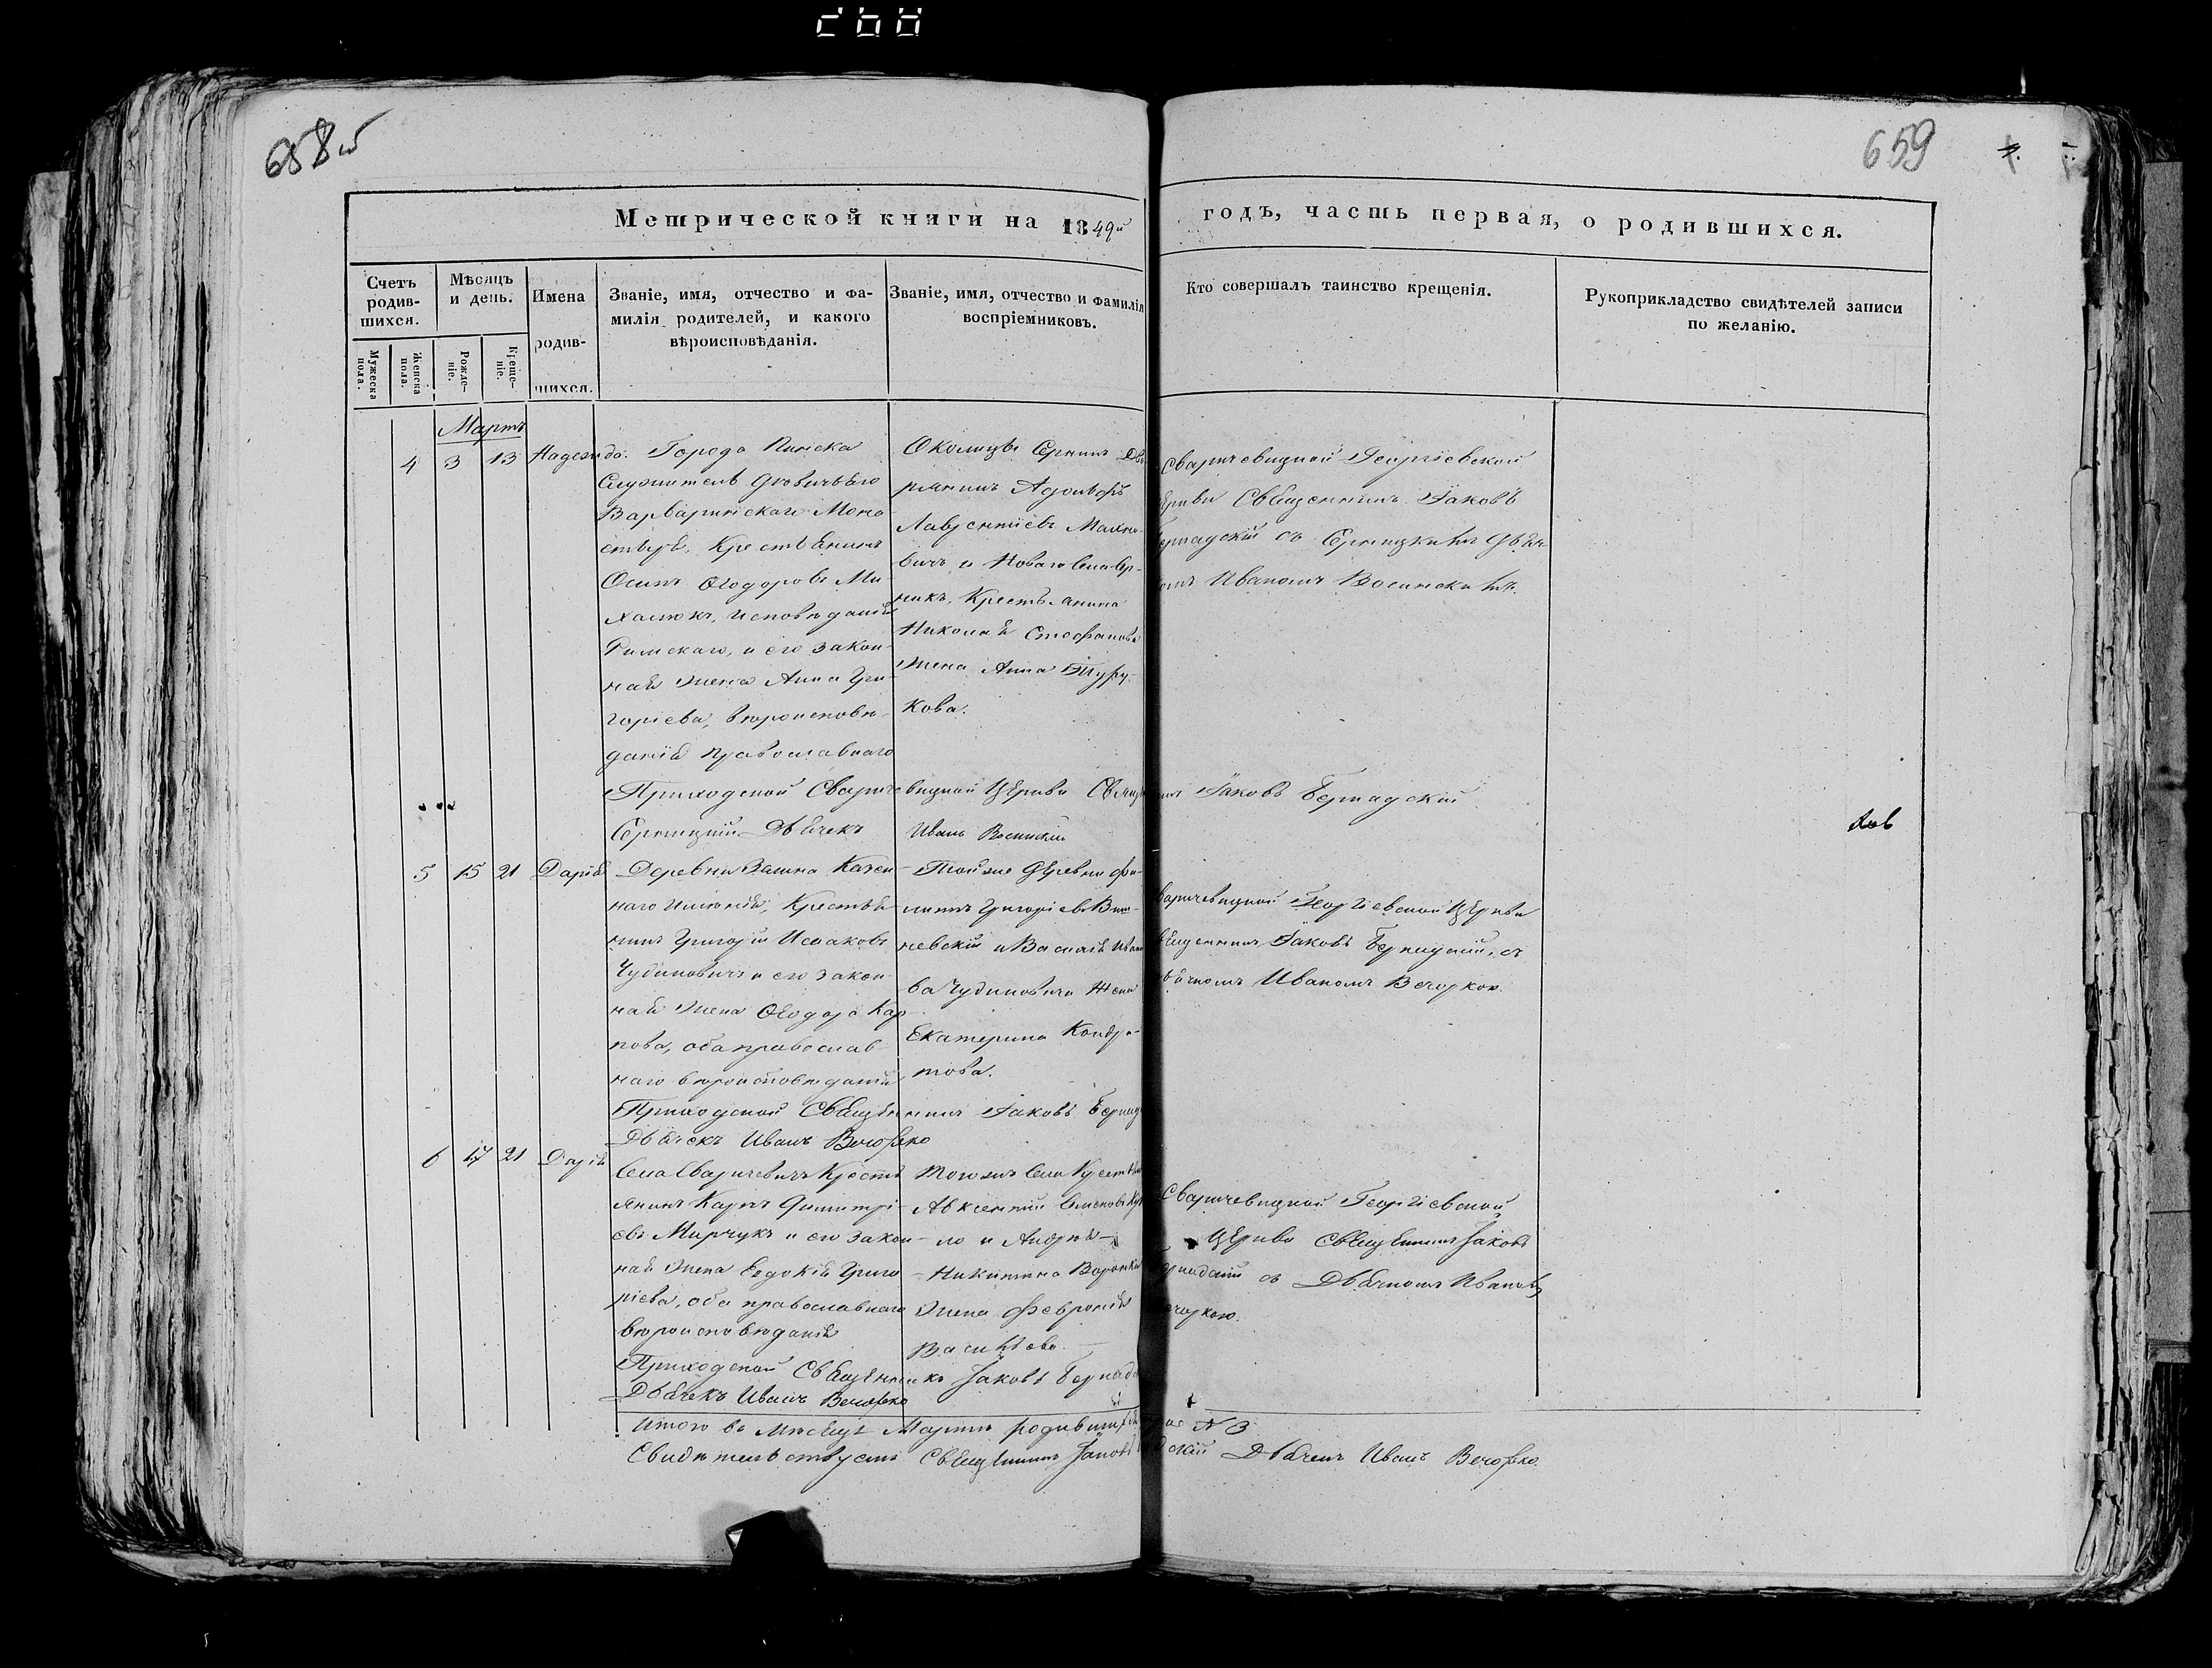 658 об
659
Метрической книги на 1849й годъ, часть первая, о родившихся.
Счетъ родив-
шихся.
Мужеска пола.
Женска пола.
Мѣсяцъ и день.
Рожде-
ніе.
Креще-
ніе.
Имена
родив-
шихся.
Званіе, имя, отчество и фа-
милія родителей, и какого
вѣроисповѣданія.
Званіе, имя, отчество и фамилія
воспріемниковъ.
Кто совершалъ таинство крещенія.
Рукоприкладство свидѣтелей записи
по желанію.
Мартъ
4 3 13 Надежда.
Города Пинска
Служитель
Варваринскаго Мона-
стыря, Крестьянинъ
Осипъ Ѳеодоровъ Ми-
халюкъ, исповѣданія
Римскаго, и его закон-
ная жена Анна Гри-
горіева, вѣроисповѣ-
данія православнаго
Околицы Серникъ Дво-
рянинъ Адольфъ
Лаврентіевъ Махно-
вичъ и Новаго Села
Крестьянина
Николая Стефанова
жена Анна
кова.
Сваричевицкой Георгіевской
Церкви Священникъ Іаковъ
Бернадскій съ Серницкимъ Дьяч-
комъ Иваномъ
Приходской Сваричевицкой Церкви Священникъ Іаковъ Бернадскій
Серницкій Дьячекъ Иванъ
5 15 21 Дарія
Деревни Казен-
наго имѣнія, Крестья-
нинъ Григорій Исааковъ
Чудиновичъ и его закон-
ная жена Ѳеодора Кар-
пова, оба православ-
наго вѣроисповѣданія
Той же деревни Фи-
липъ Григоріевъ Виш-
невскій и Василя Ивано-
ва Чудиновича жена
Екатерина Кондра-
това.
Сваричевицкой Георгіевской Церкви
Священникъ Іаковъ Бернадскій, съ
Дьячкомъ Иваномъ Вечоркою.
Приходской Священникъ Іаковъ Бернад
Дьячекъ Иванъ Вечорко
6 17 21 Дарія
Села Сваричевичъ Кресть-
янинъ Карпъ Димитрі-
евъ Мирчукъ и его закон-
ная жена Евдокія Григо-
ріева, оба православнаго
вѣроисповѣданія
Тогожъ Села Крестьянинъ
Авксентій Семеновъ
ло и Андрея
Никитина
жена Февронія
Васильева.
Сваричевицкой Георгіевской
Церкви Священникъ Іаковъ
Бернадскій съ Дьячкомъ Иваномъ
Вечоркою.
Приходской Священникъ Іаковъ Бернадс
Дьячекъ Иванъ Вечорко
Итого въ Мѣсяцѣ Мартѣ родивши N 3
Свидѣтельствуемъ Священникъ Іаковъ дскій Дьячекъ Иванъ Вечорко.